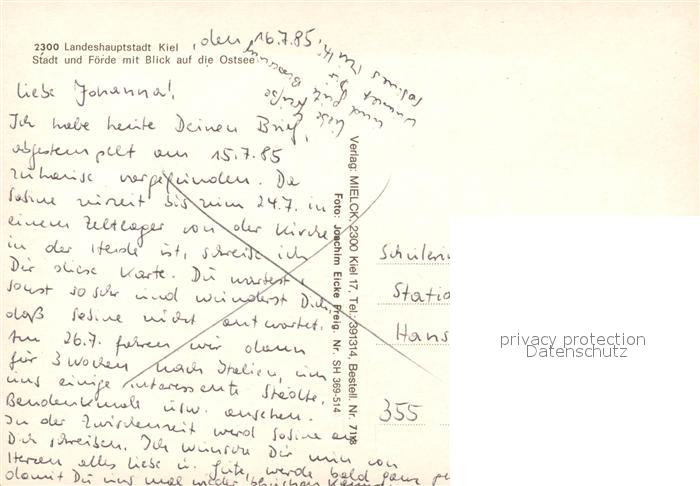 2300 Landeshauptstadt Kiel
Stadt und Förde mit Blick auf die Ostsee
, den 16.7.85,
Liebe Johanna!,
Ich habe heute Deinen Brief,
abgestempelt am 15.7.85
zuhause vorgefunden. Da
Sabine zurzeit bis zum 24.7. in
einem Zeltlager von der Kirche
in der Heide ist, schreibe ich
Dir diese Karte. Du wartest
sonst so sehr und wunderst Dich,
daß Sabine nicht antwortet.
Am 26.7. fahren wir dann
für 3 Wochen nach Italien, um
uns einige interessante Städte,
Baudenkmale usw. ansehen.
In der Zwischenzeit wird Sabine an
Dich schreiben. Ich wünsche Dir nun von
Herzen alles Liebe u. Gute, werde bald ganz ge
damit Du uns mal wieder besuchen kannst.
und liebe Grüße
Sabines Mutti
Verlag: MIELCK, 2300 Kiel 17, Tel. 391314, Bestell. Nr. 718
Foto: Joachim Eicke Freig. Nr. SH 369-514
Schülerin
Statio
Hans
355
privacy protection
Datenschutz